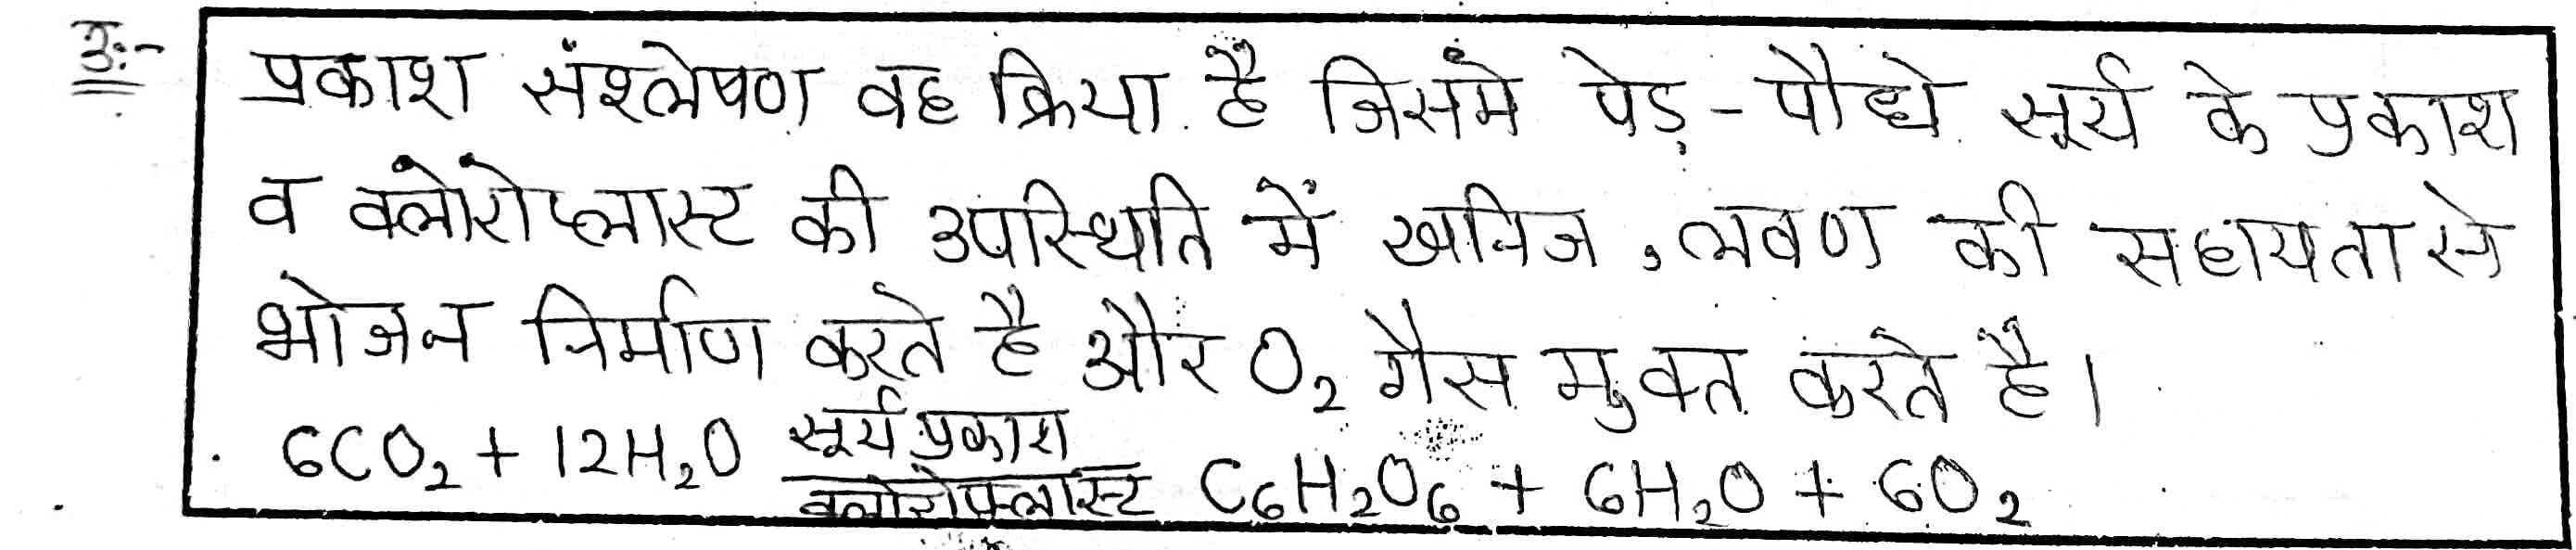 उ:-
प्रकाश संश्लेषण वह क्रिया है जिसमे पेड़ - पौधे सूर्य के प्रकाश
व क्लोरोप्लास्ट की उपस्थिति में खनिज , लवण की सहायता से
भोजन निर्माण करते है और O₂ गैस मुक्त करते है।
6CO₂ + 12H₂O सूर्य प्रकाश
क्लोरोप्लास्ट C₆H₂O₆ + 6H₂O + 6O₂